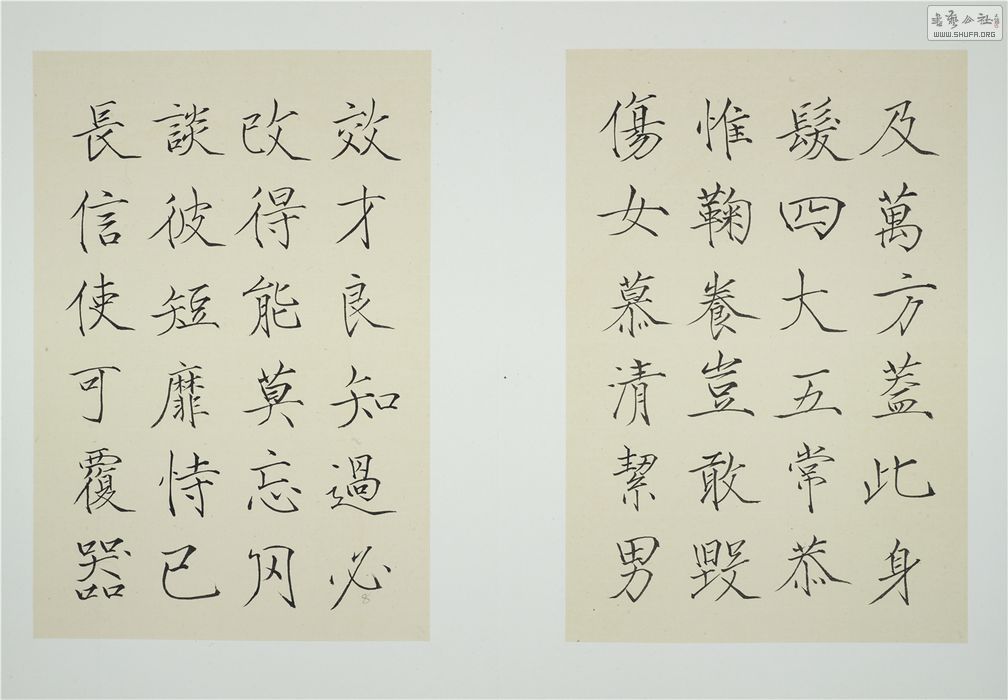 及萬方蓋此身
髮四大五常恭
惟鞠養豈敢毀
傷女慕清絜男
效才良知過必
改得能莫忘罔
談彼短靡恃已
長信使可覆器
8
書藝公社
WWW.SHUFA.ORG